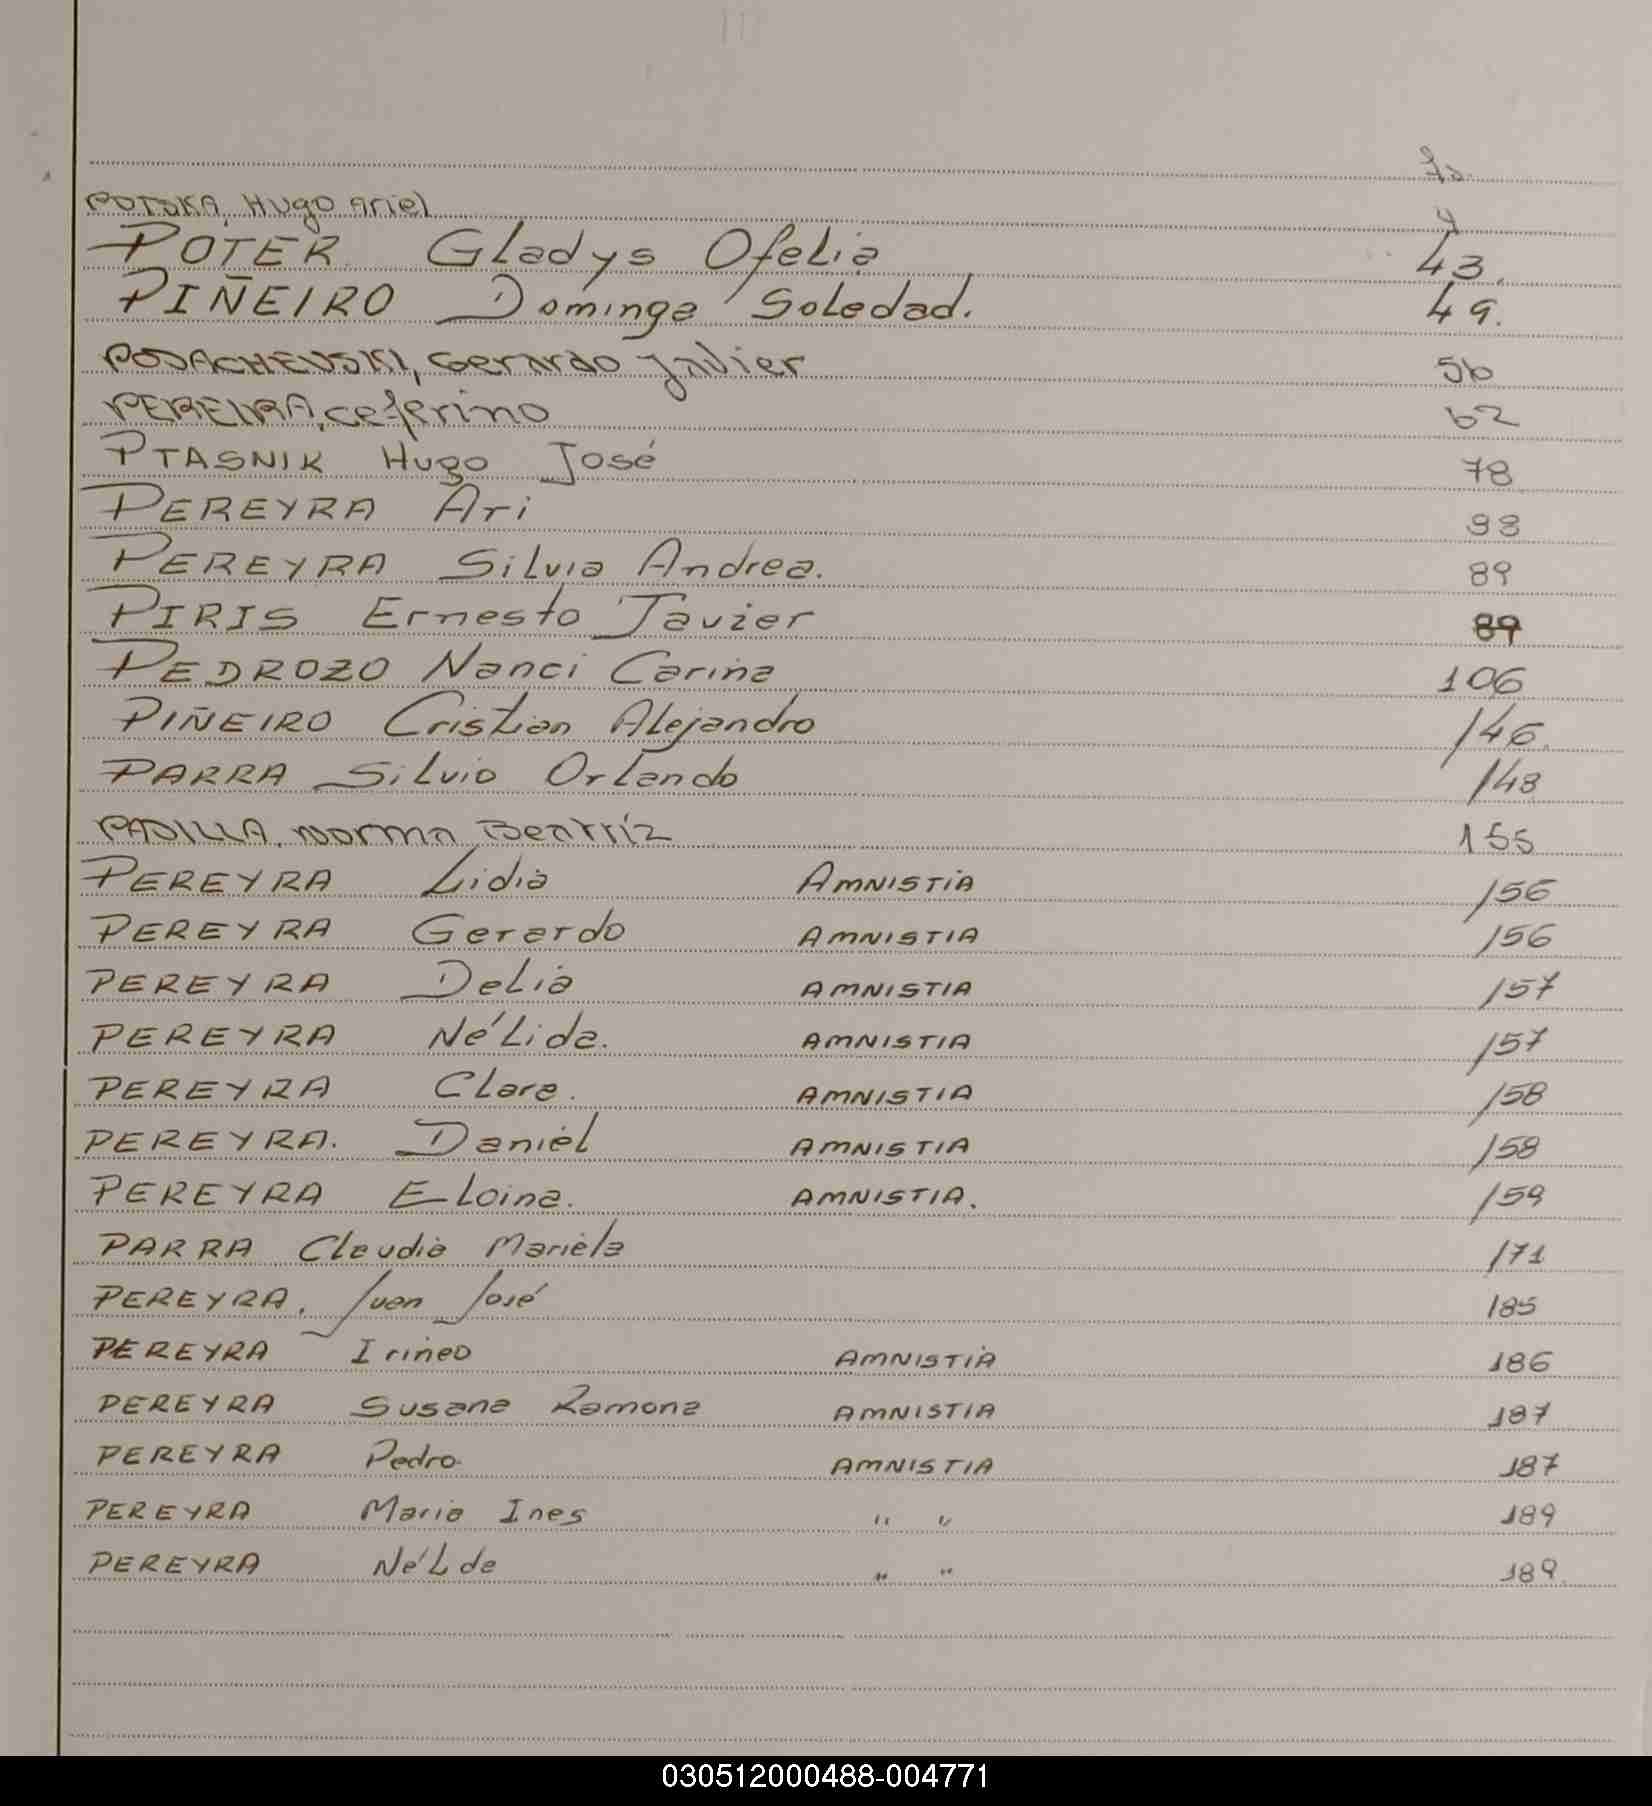 Fs.
POTSKA, Hugo Ariel 4
POTER Gladys Ofelia 43.
PIÑEIRO Dominga Soledad. 49.
PODACHEVSKI, Gerardo Javier 56
PEREIRA, Ceferino 62
PTASNIK Hugo José 78
PEREYRA Ari 83
PEREYRA Silvia Andrea. 89
PIRIS Ernesto Javier 89
PEDROZO Nanci Carina 106
PIÑEIRO Cristian Alejandro 146.
PARRA Silvio Orlando 148
PADILLA, Norma Beatríz 155
PEREYRA Lidia AMNISTIA 156
PEREYRA Gerardo AMNISTIA 156
PEREYRA Delia AMNISTIA 157
PEREYRA Nélida. AMNISTIA 157
PEREYRA Clara. AMNISTIA 158
PEREYRA. Daniel AMNISTIA 158
PEREYRA Eloina. AMNISTIA. 159
PARRA Claudia Mariela 171
PEREYRA, Juan José 185
PEREYRA Irineo AMNISTIA 186
PEREYRA Susana Ramona AMNISTIA 187
PEREYRA Pedro. AMNISTIA 187
PEREYRA Maria Ines " " 189
PEREYRA Nélda " " 189.
030512000488-004771